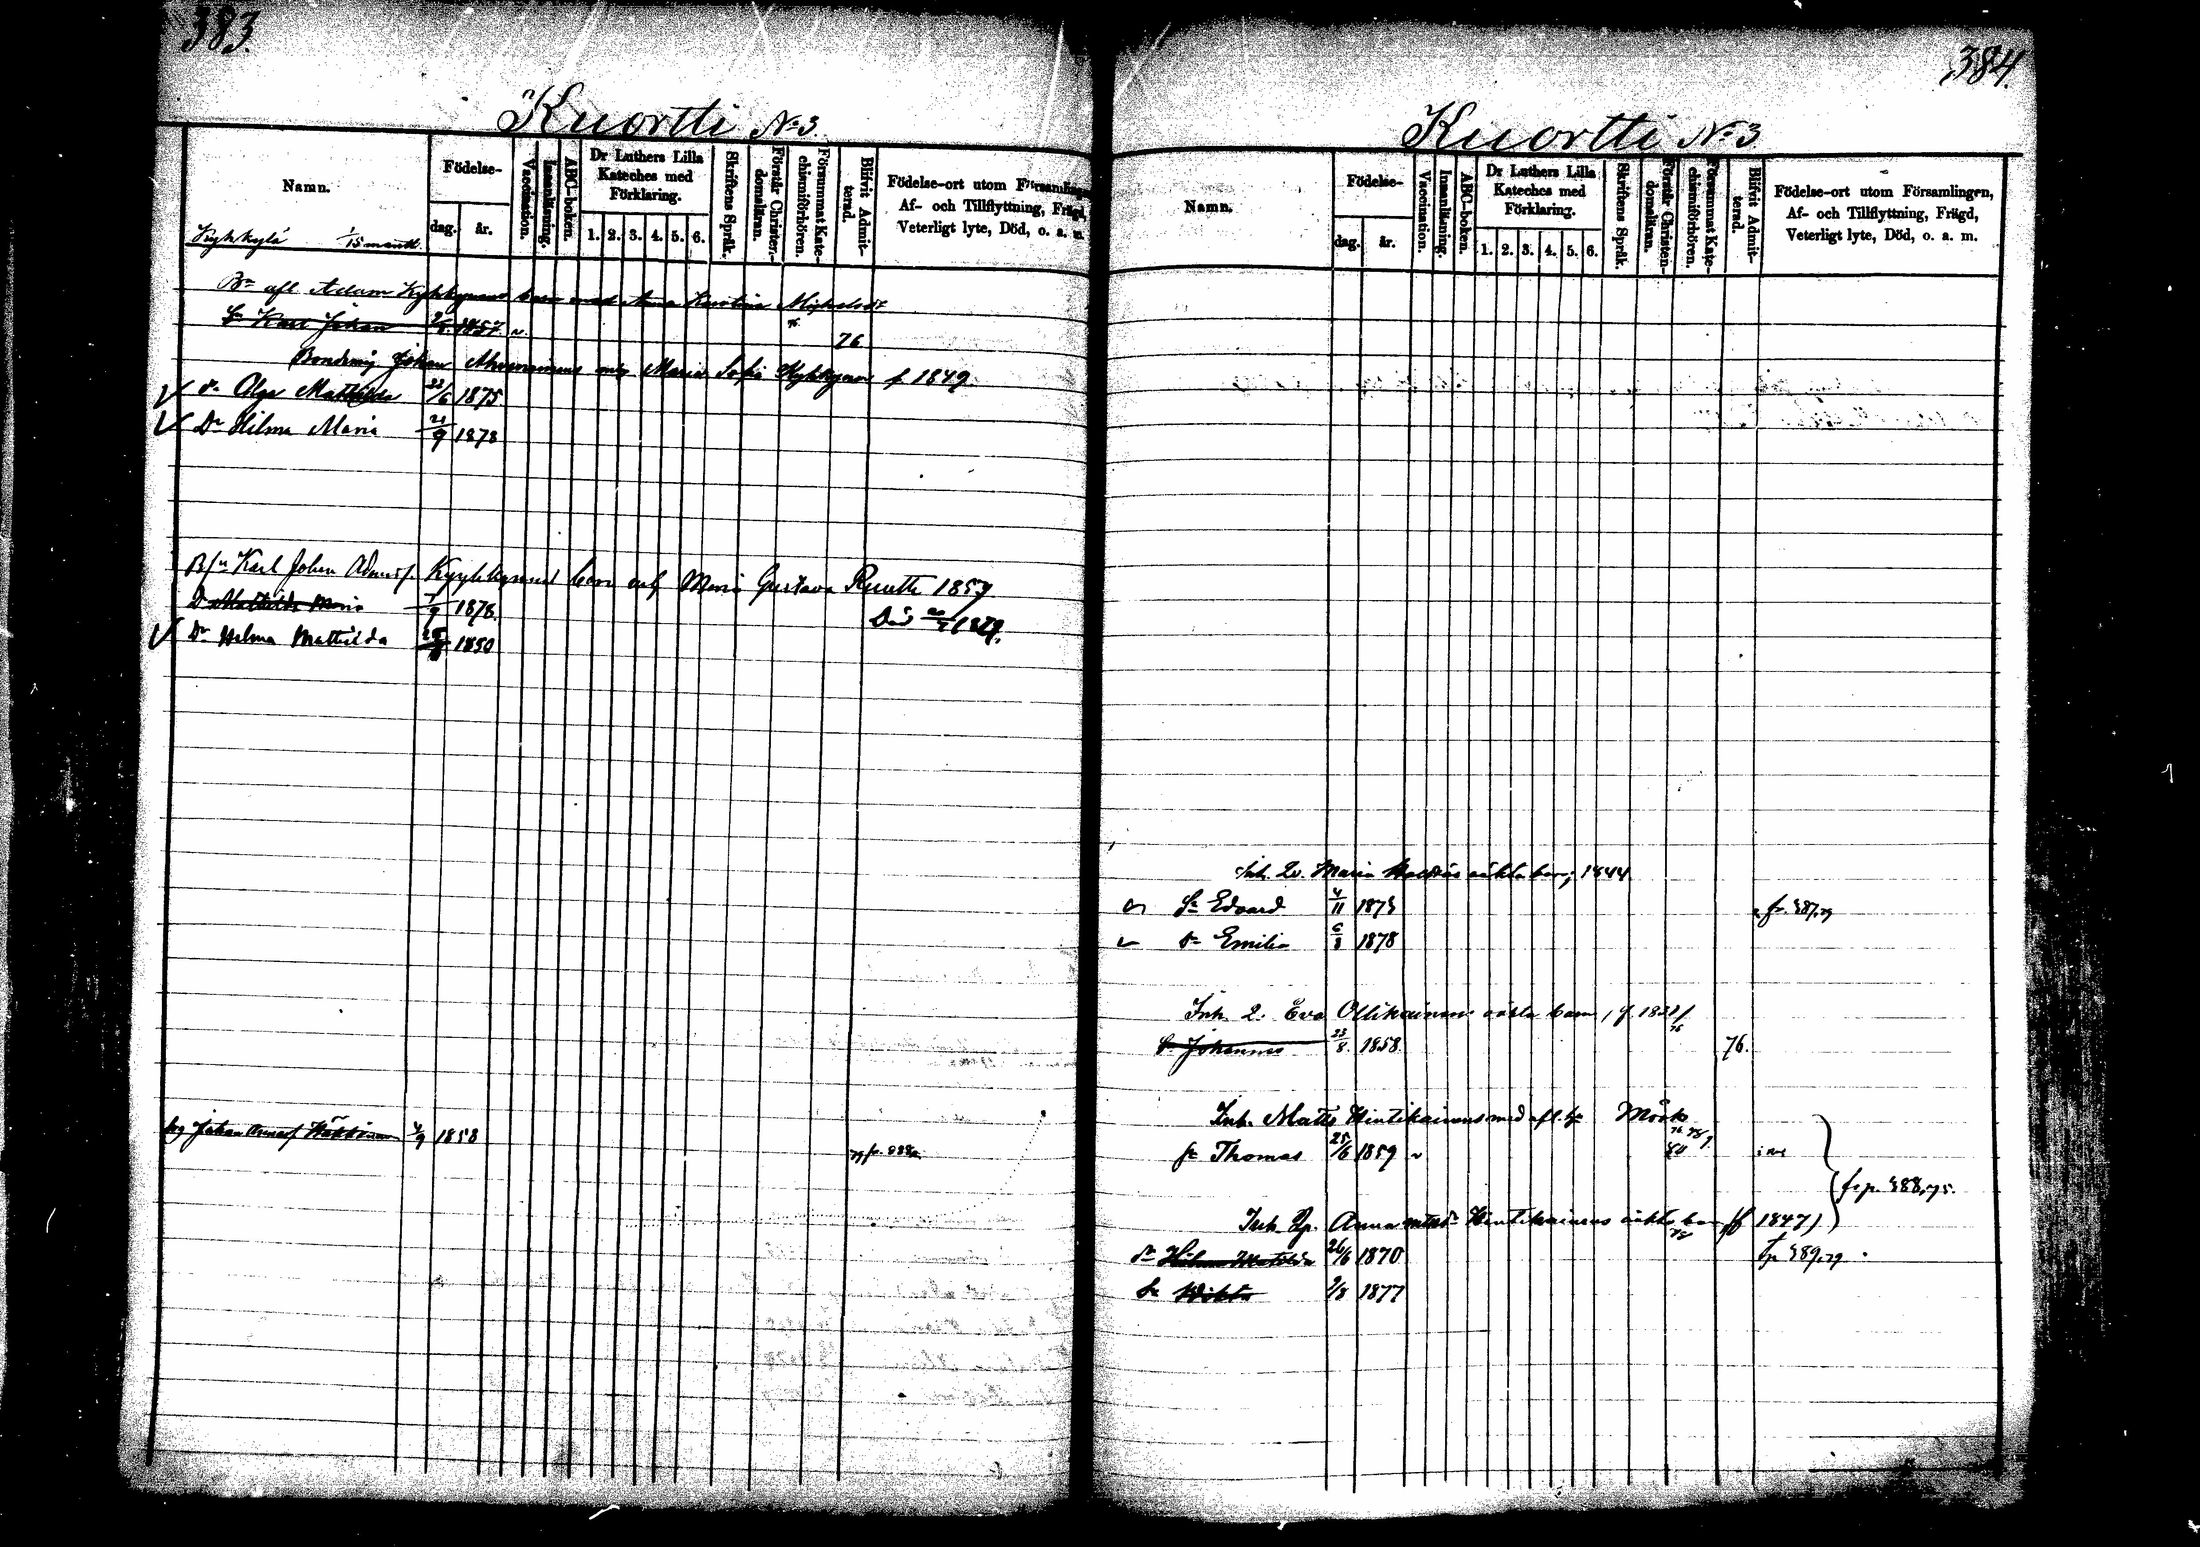 383.
Kuortti No 3.
Namn.
Födelse-
dag.
år.
Vaccination.
Innanläsning.
ABC-boken.
Dr Luthers Lilla
Kateches med
Förklaring.
1. 2. 3. 4. 5. 6.
Skriftens Språk.
Förstår Christen-
domsläran.
Försummat Kate-
chismiförhören.
Blifvit Admit-
terad.
Födelse-ort utom Församlingen,
Af- och Tillflyttning, Frägd,
Veterligt lyte, Död, o. a. m.
Kykkylä 1/15 mantl.
Bn afl. Adam Kykkynens barn med Anna Kristina Michelsdr
Sn Karl Johan 1857 76
Johan Ahvenainens Maria Sofia Kykkynen f 1849
dr Olga Mathilda 22/6 1875
Dr Hilma Maria 21/9 1878
Karl Johan Adamsf. Kykkynens barn Maria Gustava Ruuth 1859
Dr Mathilda Maria 7/9 1878. Död 1879.
Dr Helma Mattilda 1880
Johan 4/9 1858
384.
Kuortti No 3
Namn.
Födelse-
dag.
år.
Vaccination.
Innanläsning.
ABC-boken.
Dr Luthers Lilla
Kateches med
Förklaring.
1. 2. 3. 4. 5. 6.
Skriftens Språk.
Förstår Christen-
domsläran.
Försummat Kate-
chismiförhören.
Blifvit Admit-
terad.
Födelse-ort utom Församlingen,
Af- och Tillflyttning, Frägd,
Veterligt lyte, Död, o. a. m.
Inh. Qv. Maria oäkta barn 1844
Sn Edvard 4/11 1873 fr. 387.79
dr Emilia 6/8 1878
Inh. Q. Eva Ollikainens oäkta barn,
Sn Johannes 23/8. 1858. 76.
Inh. Matts Hintikainens med afl.
sn Thomas 25/6 1859
frp. 388,75.
Inh. Anna Hintikainens oäkta barn (f 1847)
dr Hilma Matilda 26/6 1870 fp 389.79
Sn Wiktor 2/8 1877